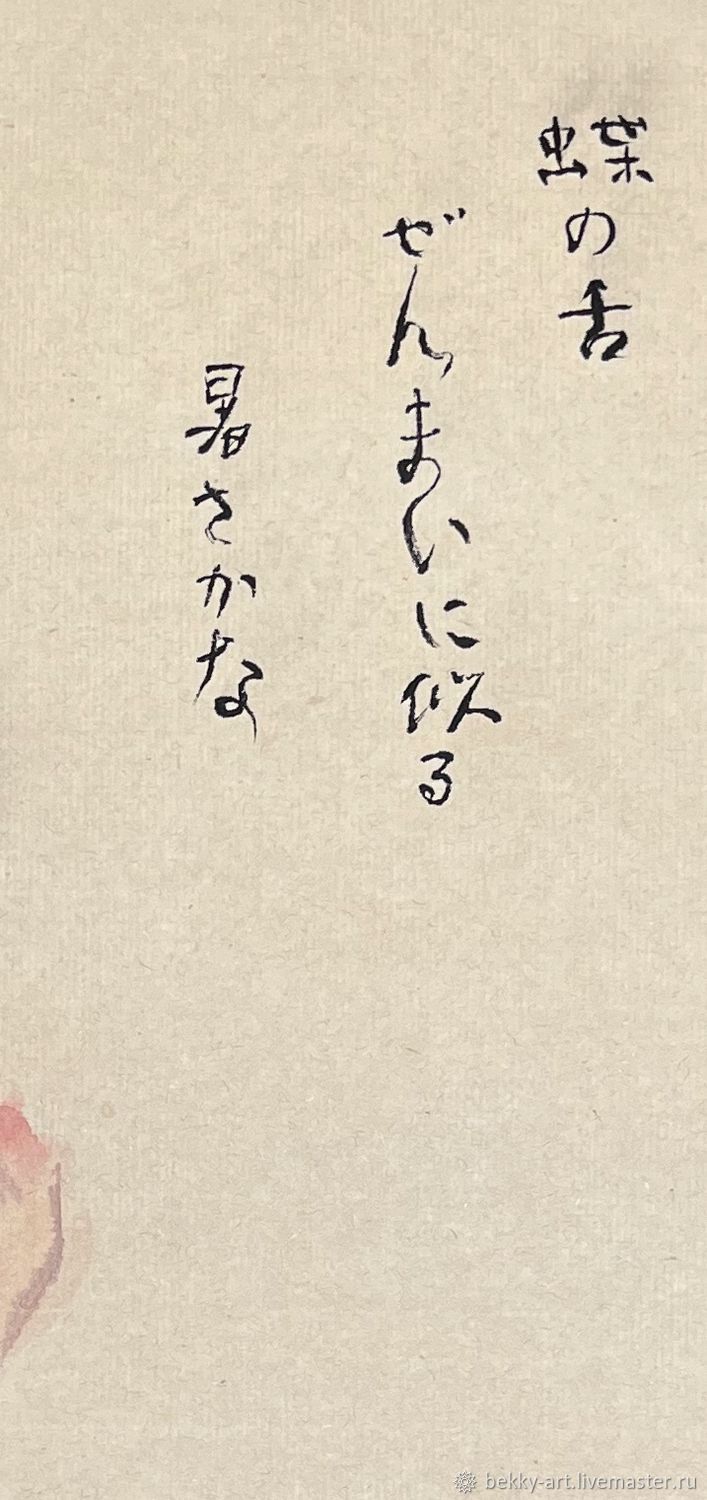 蝶の舌
ぜんまいに似る
暑さかな
bekky-art.livemaster.ru